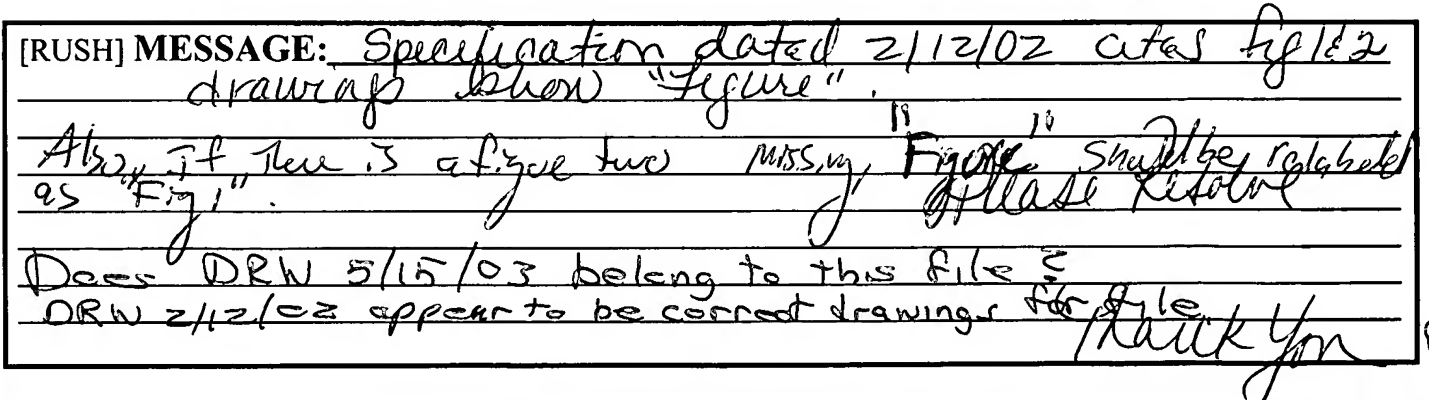 [RUSH] MESSAGE: Specification dated 2/12/02 cites fig 1&2
drawings show "Figure".
Also, If There is a figue two missing, "Figure" should be relabeled
as "Fig 1". Please Resolve
Does DRW 5/15/03 belong to this file?
DRW 2/12/02 appear to be correct drawings for file
Thank You